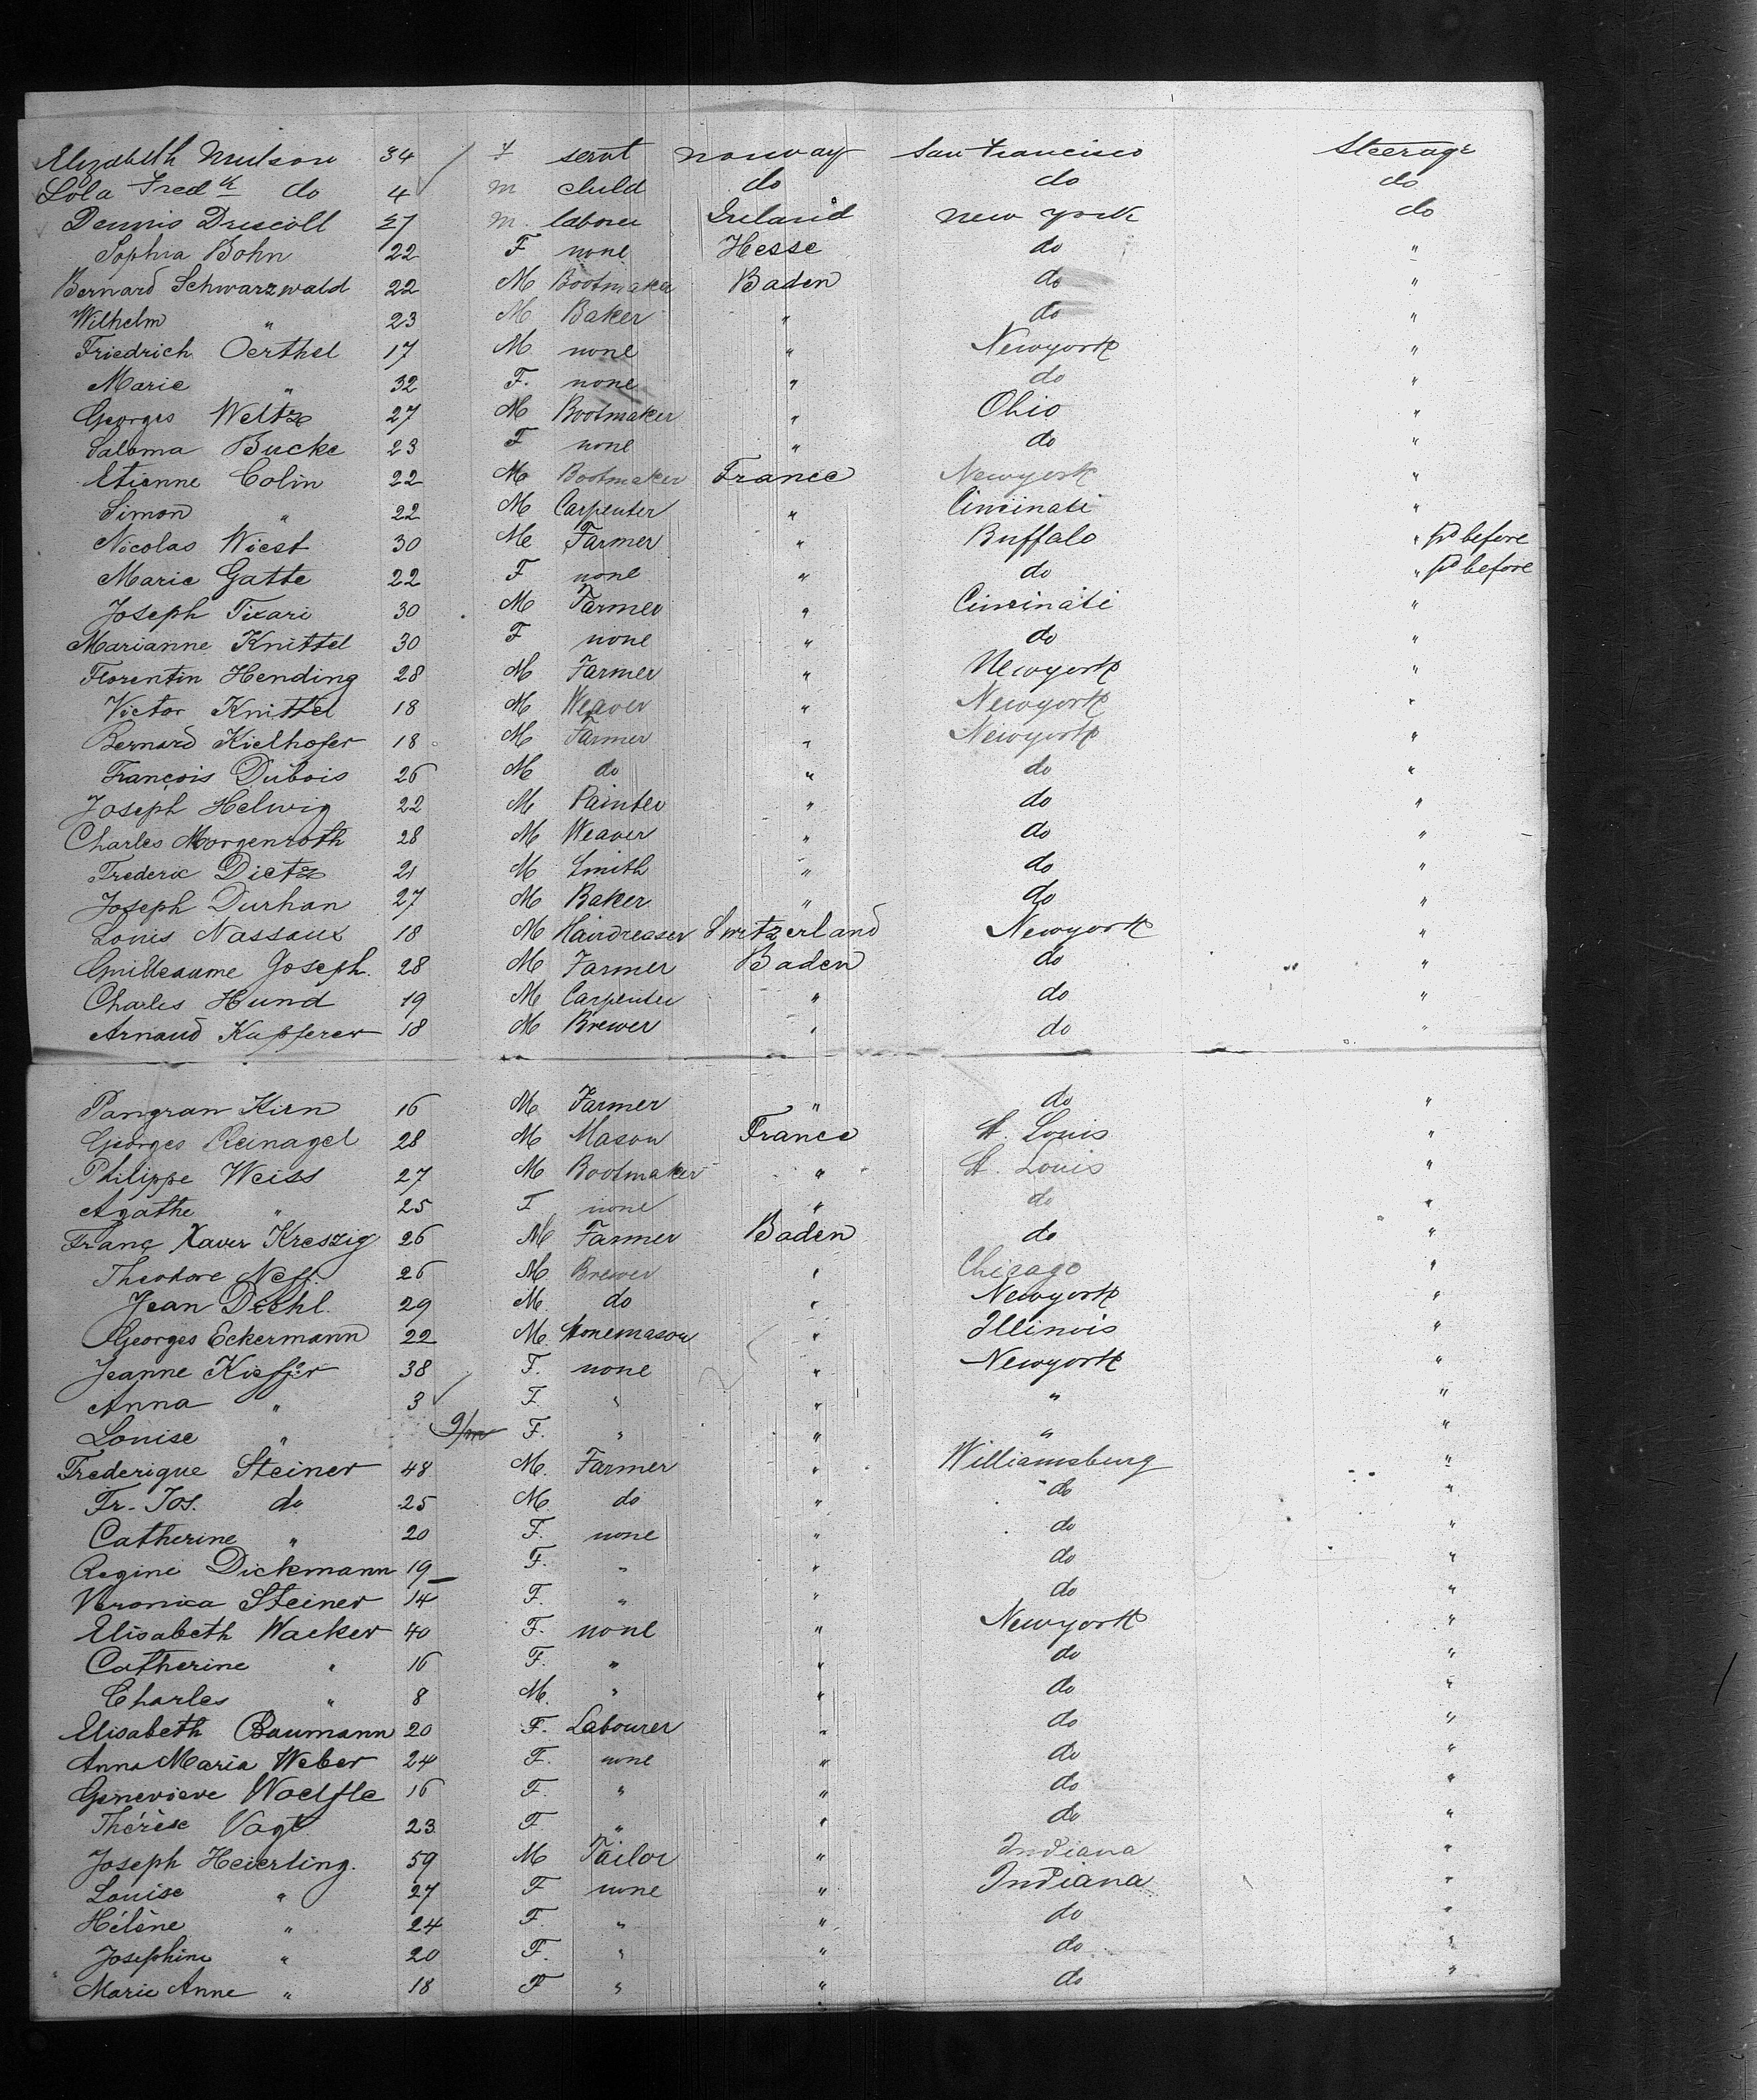 Elizabeth Nulson 34 F servt Norway San Francisco Steerage
Lola Fredk do 4 m child do do do
Dennis Driscoll 27 m laborer Ireland New York do
Sophia Bohn 22 F none Hesse do "
Bernard Schwarzwald 22 M Bootmaker Baden do "
Wilhelm " 23 M Baker " do "
Friedrich Oerthel 17 M none " Newyork "
Marie " 32 F. none " do "
Georges Weltz 27 M Bootmaker " Ohio "
Saloma Bucke 23 F none " do "
Etienne Colin 22 M Bootmaker France Newyork "
Simon " 22 M Carpenter " Cincinati "
Nicolas Wiest 30 M Farmer " Buffalo " pd before
Marie Gatte 22 F none " do " pd before
Joseph Tixari 30 M Farmer " Cincinati "
Marianne Knittel 30 F none " do "
Florentin Hending 28 M Farmer " Newyork "
Victor Knittel 18 M Weaver " Newyork "
Bernard Kielhofer 18 M Farmer " Newyork "
François Dubois 26 M do " do "
Joseph Helwig 22 M Painter " do "
Charles Morgenroth 28 M Weaver " do "
Frederic Dietz 21 M Smith " do "
Joseph Durhan 27 M Baker " do "
Louis Nassaux 18 M Hairdresser Switzerland Newyork "
Guilleaume Joseph. 28 M Farmer Baden do "
Charles Hund 19 M Carpenter " do "
Arnaud Kupferer 18 M Brewer " do "
Pangran Kirn 16 M Farmer " do "
Georges Reinagel 28 M Mason France St. Louis "
Philippe Weiss 27 M Bootmaker " St. Louis "
Agathe " 25 F none " do "
Franç Xaver Kreszig 26 M Farmer Baden do "
Theodore Neff. 26 M. Brewer " Chicago "
Jean Diehl. 29 M. do " Newyork "
Georges Eckermann 22 M. Stonemason " Illinois "
Jeanne Kieffer 38 F. none " Newyork "
Anna " 3 F. " " " "
Louise " 9/m F. " " " "
Frederique Steiner 48 M. Farmer " Williamsburg "
Fr. Jos. do 25 M. do " do "
Catherine " 20 F. none " do "
Regine Dickmann 19 F. " " do "
Veronica Steiner 14 F. " " do "
Elisabeth Wacker 40 F. none " Newyork "
Catherine " 16 F. " " do "
Charles " 8 M. " " do "
Elisabeth Baumann 20 F. Labourer " do "
Anna Maria Weber 24 F. none " do "
Genevieve Woelfle 16 F. " " do "
Thérèse Vogt 23 F. " " do "
Joseph Heierling. 59 M Tailor " Indiana "
Louise " 27 F none " Indiana "
Hélène " 24 F. " " do "
Josephine " 20 F. " " do "
Marie Anne " 18 F " " do "